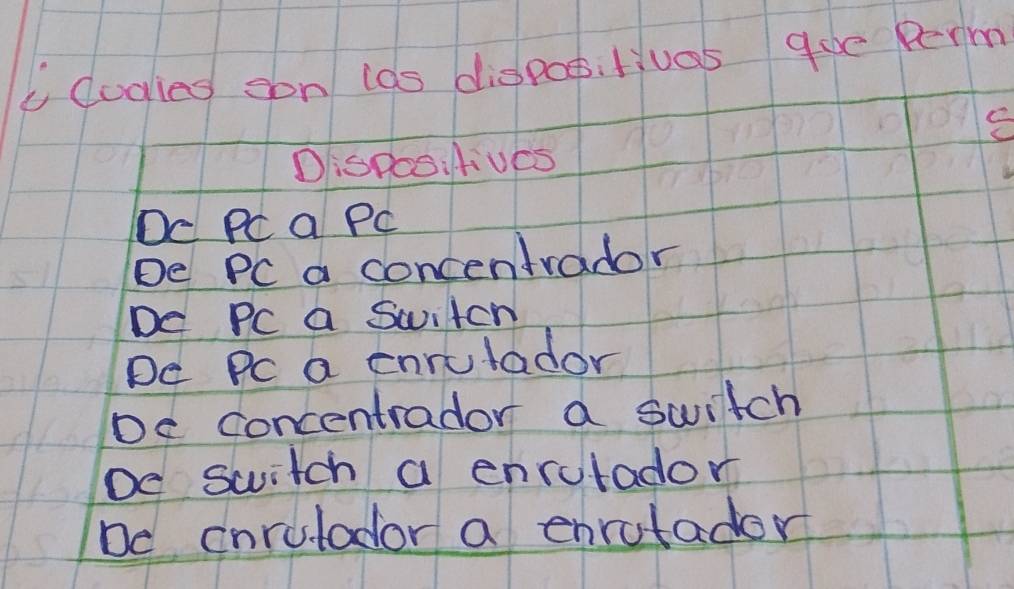 ¿Cuales son los dispositivos que Perm
Dispositivos
De PC a PC
De PC a concentrador
De PC a Switch
De PC a enrutador
De concentrador a switch
De switch a enrutador
De enrutador a enrutador